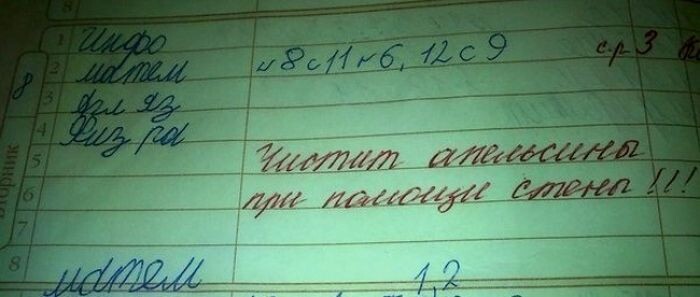 8
1 Инфо
2 матем №8 с 11 №6, 12 с 9 ср 3
3 Анг яз
4 Физ ра
5 Чистит апельсины
6 при помощи стены!!!
7
8
8
Вторник
матем 1,2